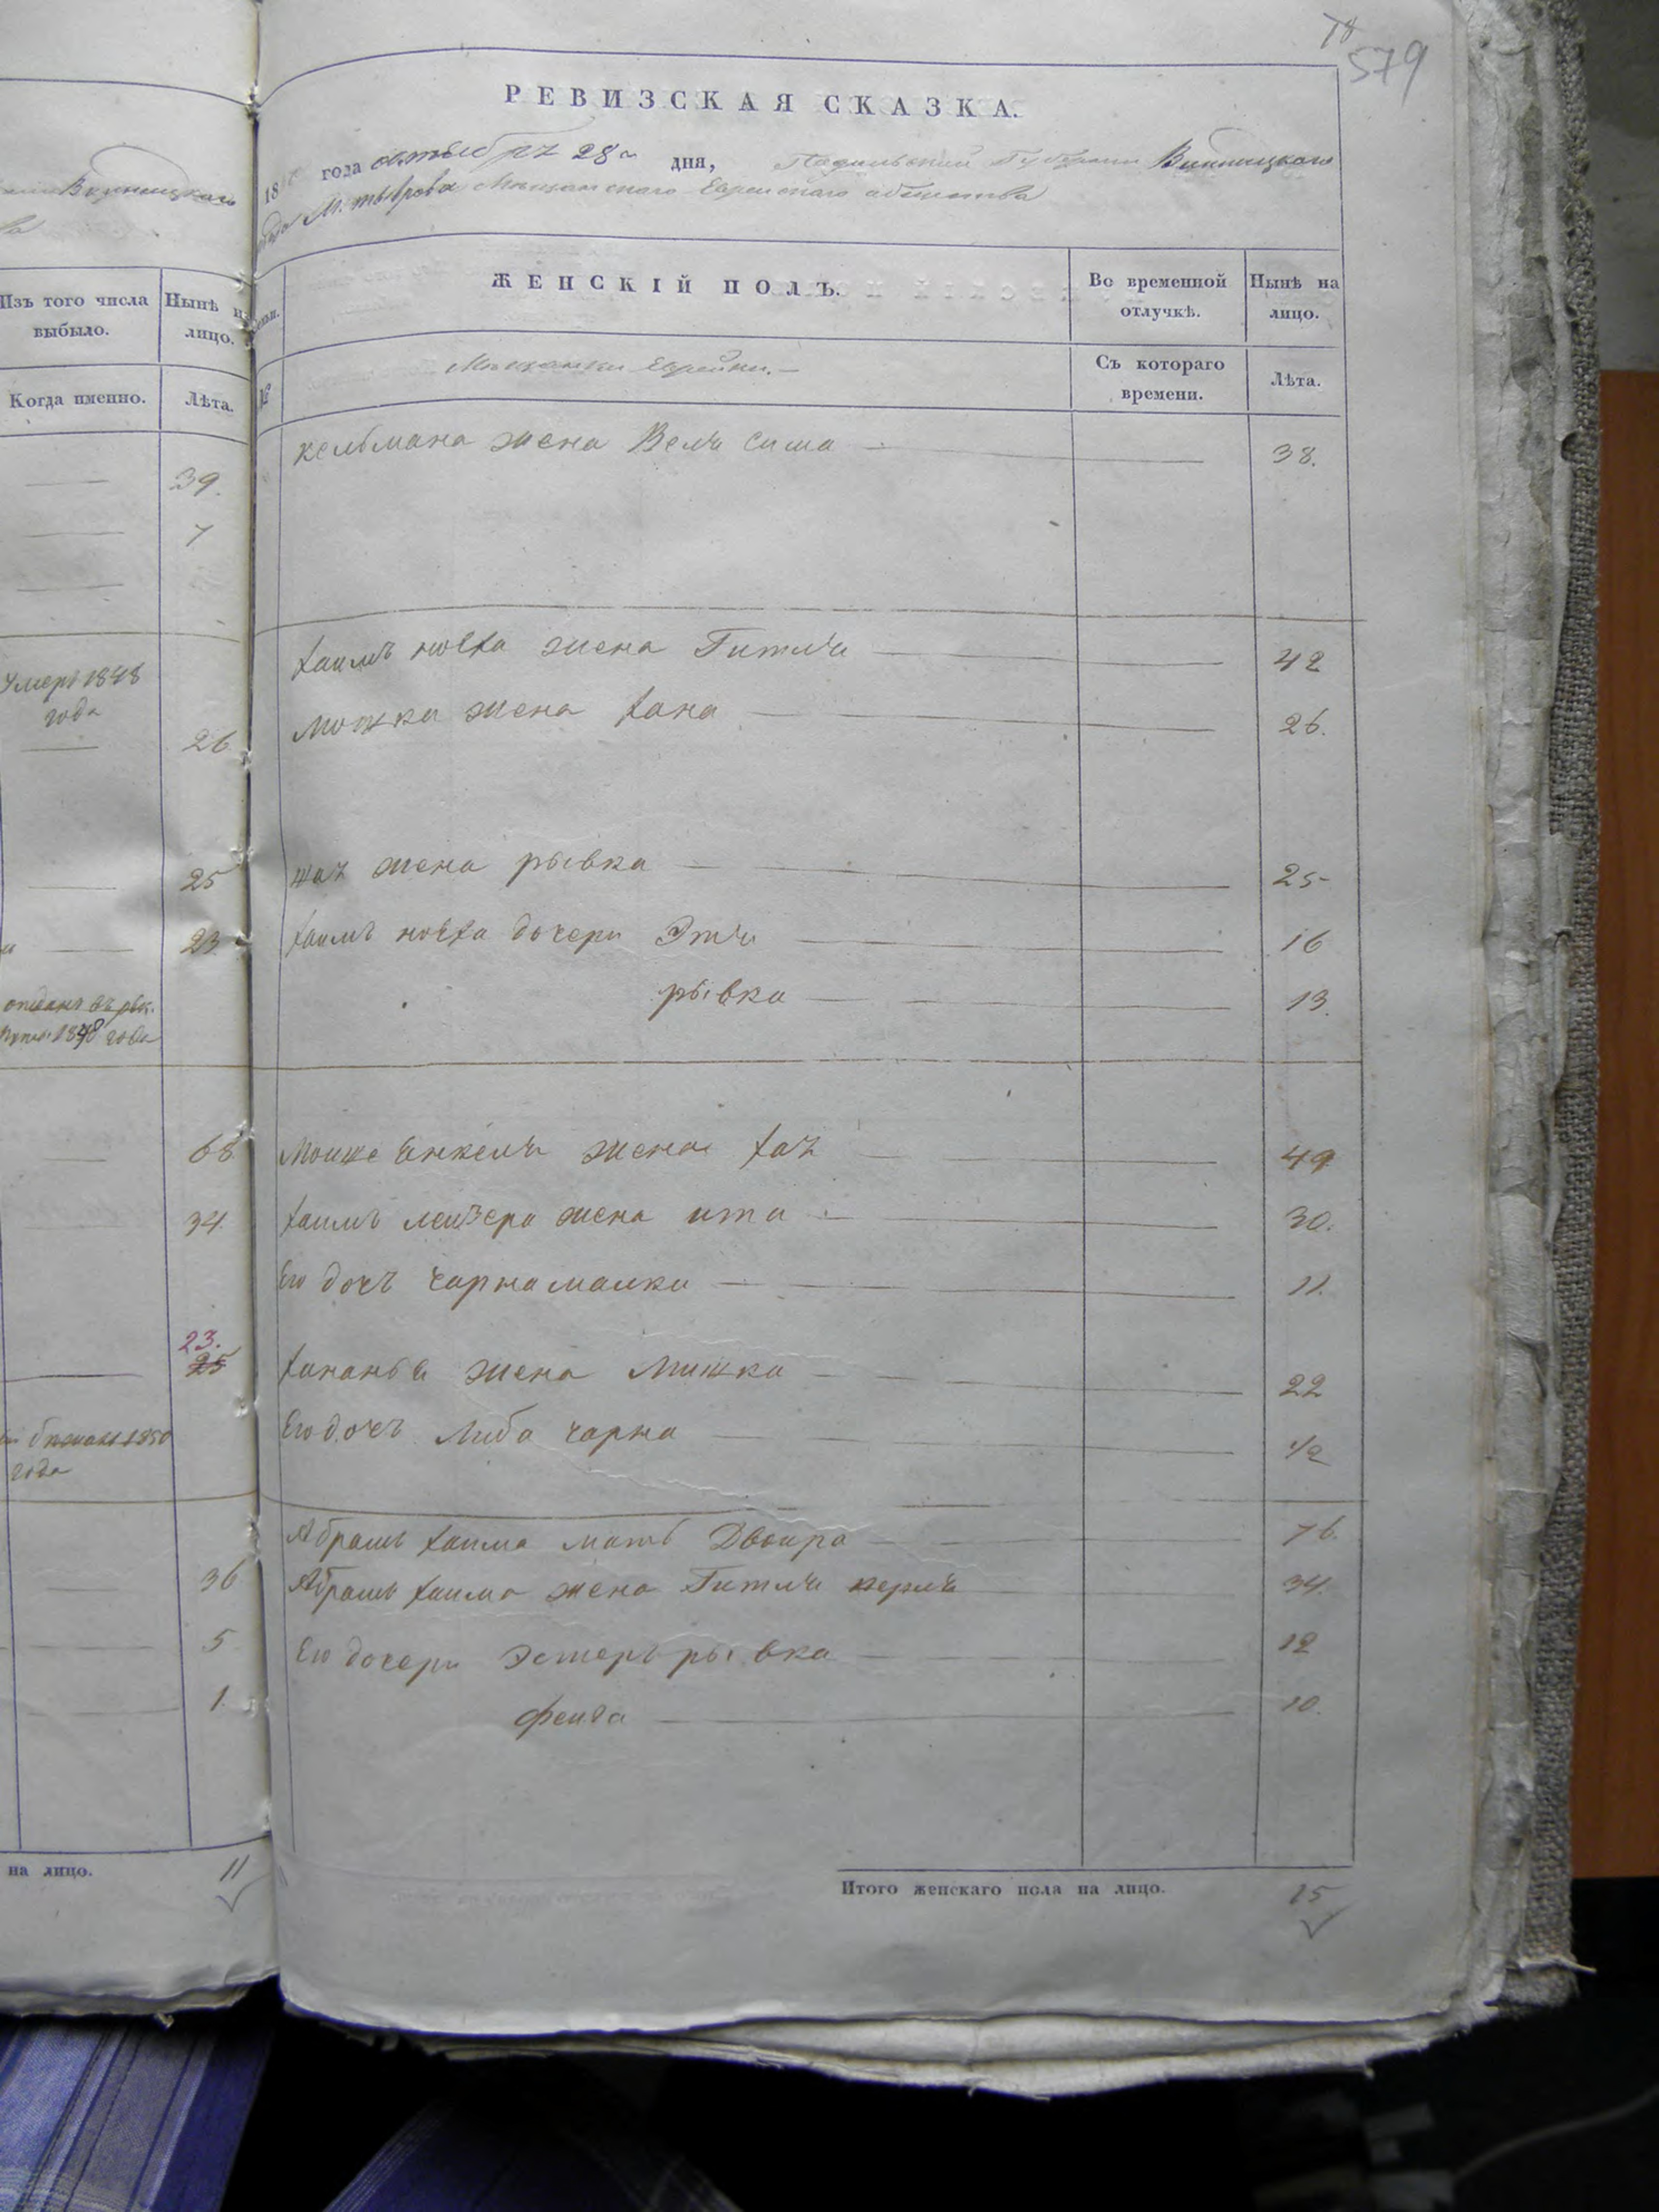 78
579
РЕВИЗСКАЯ СКАЗКА.
18 года октября 28 дня, Подольской Губернии Винницкаго
М. тыврова Мещанскаго Еврейскаго общества
Винницкаго
Изъ того числа выбыло.
Нынѣ на лицо.
ЖЕНСКІЙ ПОЛЪ.
Во временной отлучкѣ.
Нынѣ на лицо.
Когда именно.
Лѣта.
№
Мещанки Еврейки.—
Съ котораго времени.
Лѣта.
кельмана жена Веля сима 38.
39.
7
хаимъ нохга жена Гитля 42
Умеръ 1848 года
мошка жена хана 26.
26
25 жена рывка 25
23 хаимъ дочери Этя 16
рывка 13.
отданъ въ рек. 1848 года
68 Мошке Янкеля жена хая 49
34. хаимъ лейзера жена ита 30.
Его дочь чарна малка 11.
23.
25 хананья жена Мишка 22
1850 года
Его дочь Либа чарна 1/2
Абрамъ хаима мать Двойра 76.
36 Абрамъ хаима жена Гитля перля 34.
5 Его дочери Эстеръ рывка 12
1. фейга 10.
на лицо. 11
Итого женскаго пола на лицо. 15